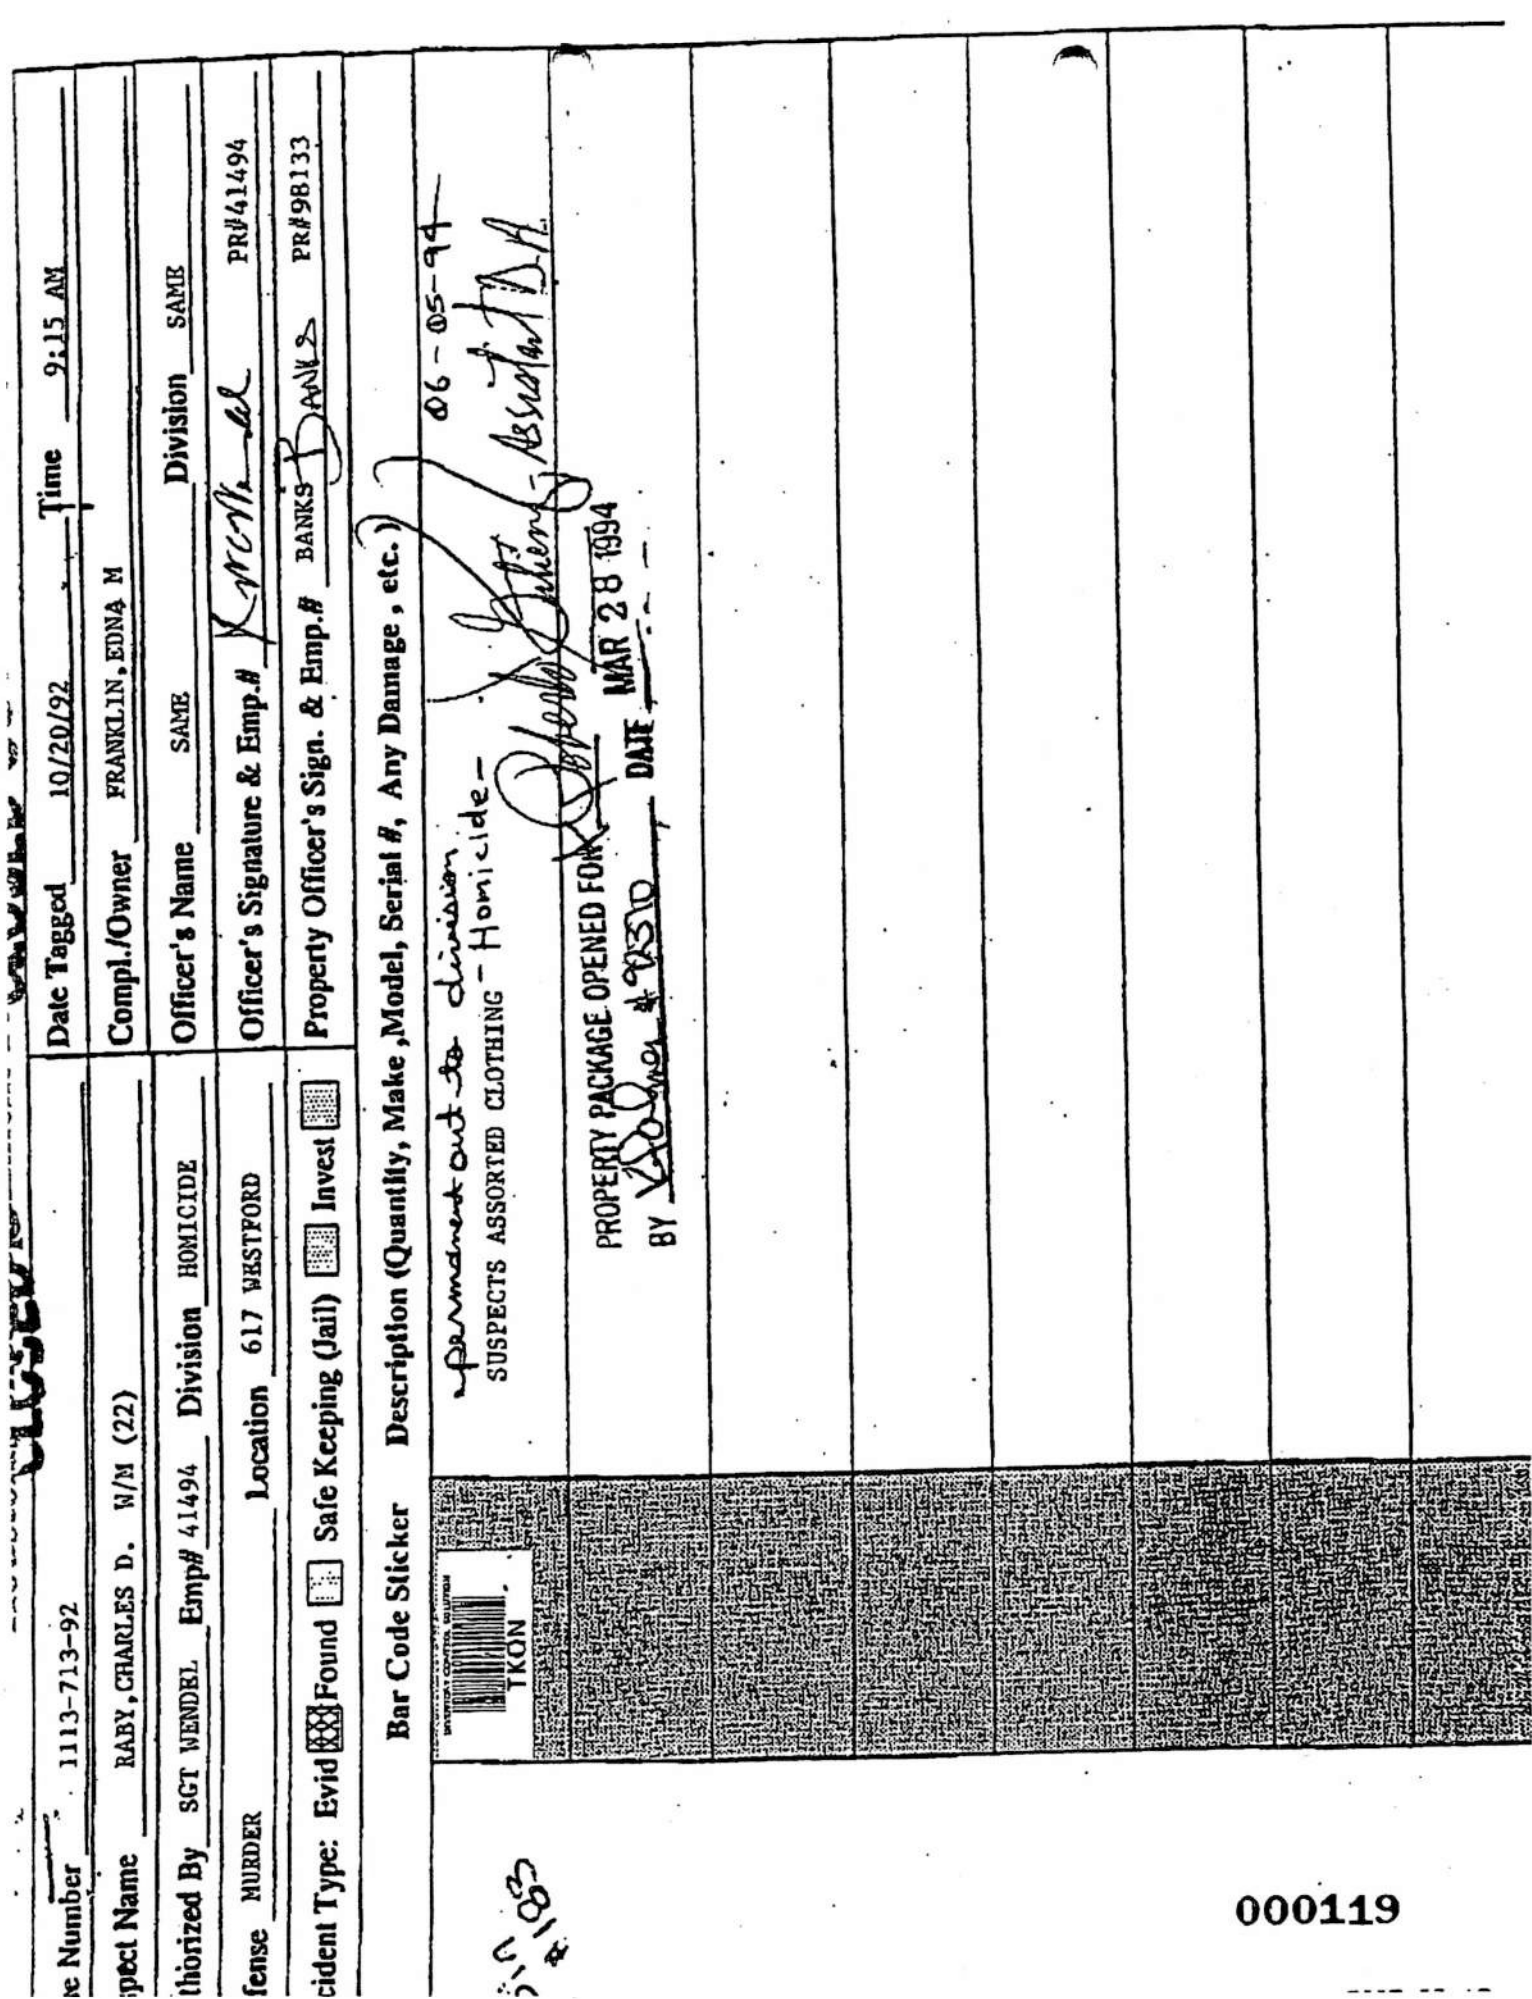 Case Number 1113-713-92 Date Tagged 10/20/92 Time 9:15 AM
spect Name RABY,CHARLES D. W/M (22) Compl./Owner FRANKLIN,EDNA M
thorized By SGT WENDEL Emp# 41494 Division HOMICIDE Officer's Name SAME Division SAME
fense MURDER Location 617 WESTFORD Officer's Signature & Emp.# PR#41494
cident Type: Evid Found Safe Keeping (Jail) Invest Property Officer's Sign. & Emp.# BANKS Banks PR#98133
Bar Code Sticker Description (Quantity, Make ,Model, Serial #, Any Damage , etc. )
permanent out to division 06-05-94
TKON
SUSPECTS ASSORTED CLOTHING - Homicide -
Assistant DA
#183
PROPERTY PACKAGE OPENED FOR
BY DATE MAR 28 1994
000119